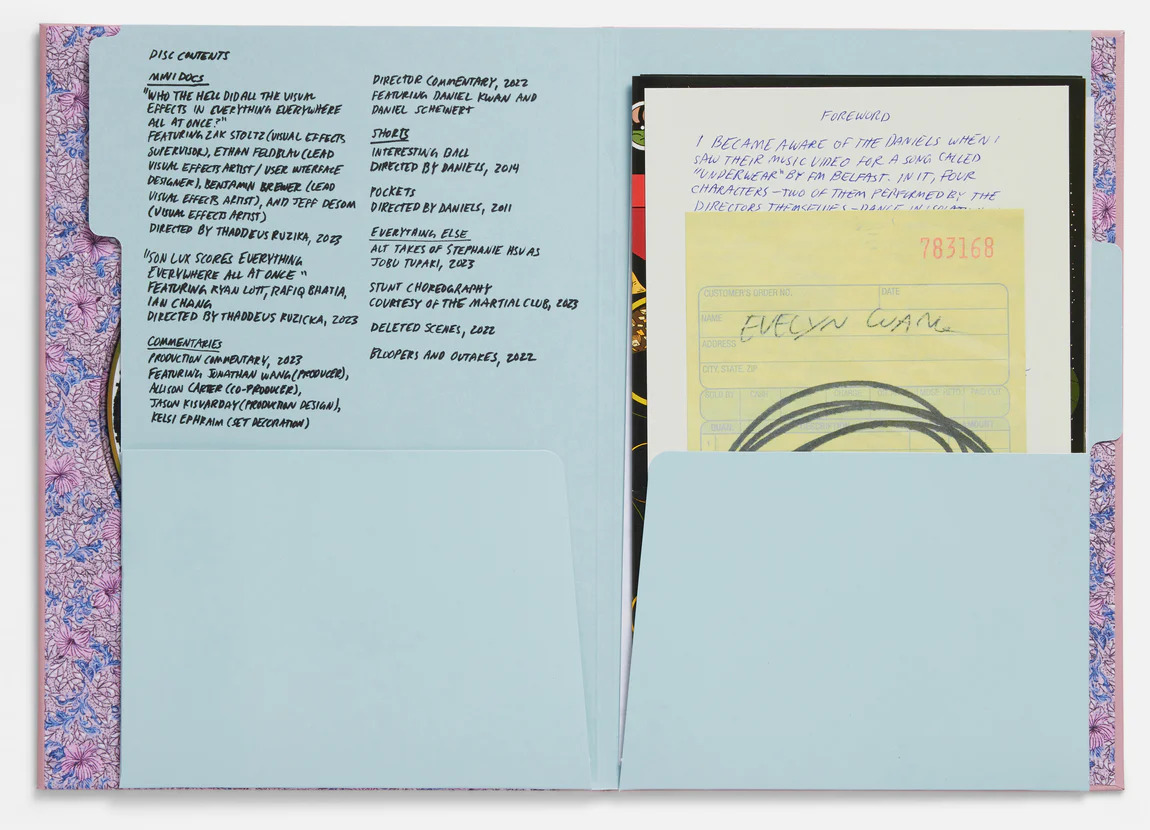 DISC CONTENTS
MINI DOCS
"WHO THE HELL DID ALL THE VISUAL
EFFECTS IN EVERYTHING EVERYWHERE
ALL AT ONCE?"
FEATURING ZAK STOLTZ (VISUAL EFFECTS
SUPERVISOR), ETHAN FELDBAU (LEAD
VISUAL EFFECTS ARTIST / USER INTERFACE
DESIGNER), BENJAMIN BREWER (LEAD
VISUAL EFFECTS ARTIST), AND JEFF DESOM
(VISUAL EFFECTS ARTIST)
DIRECTED BY THADDEUS RUZIKA, 2023
"SON LUX SCORES EVERYTHING
EVERYWHERE ALL AT ONCE"
FEATURING RYAN LOTT, RAFIQ BHATIA,
IAN CHANG
DIRECTED BY THADDEUS RUZICKA, 2023
COMMENTARIES
PRODUCTION COMMENTARY, 2023
FEATURING JONATHAN WANG (PRODUCER),
ALLISON CARTER (CO-PRODUCER),
JASON KISVARDAY (PRODUCTION DESIGN),
KELSI EPHRAIM (SET DECORATION)
DIRECTOR COMMENTARY, 2022
FEATURING DANIEL KWAN AND
DANIEL SCHEINERT
SHORTS
INTERESTING BALL
DIRECTED BY DANIELS, 2014
POCKETS
DIRECTED BY DANIELS, 2011
EVERYTHING ELSE
ALT TAKES OF STEPHANIE HSU AS
JOBU TUPAKI, 2023
STUNT CHOREOGRAPHY
COURTESY OF THE MARTIAL CLUB, 2023
DELETED SCENES, 2022
BLOOPERS AND OUTAKES, 2022
FOREWORD
I BECAME AWARE OF THE DANIELS WHEN I
SAW THEIR MUSIC VIDEO FOR A SONG CALLED
"UNDERWEAR" BY FM BELFAST. IN IT, FOUR
CHARACTERS – TWO OF THEM PERFORMED BY THE
DIRECTORS THEMSELVES – DANCE IN
783168
CUSTOMER'S ORDER NO. DATE
NAME EVELYN WANG
ADDRESS
CITY, STATE, ZIP
SOLD BY